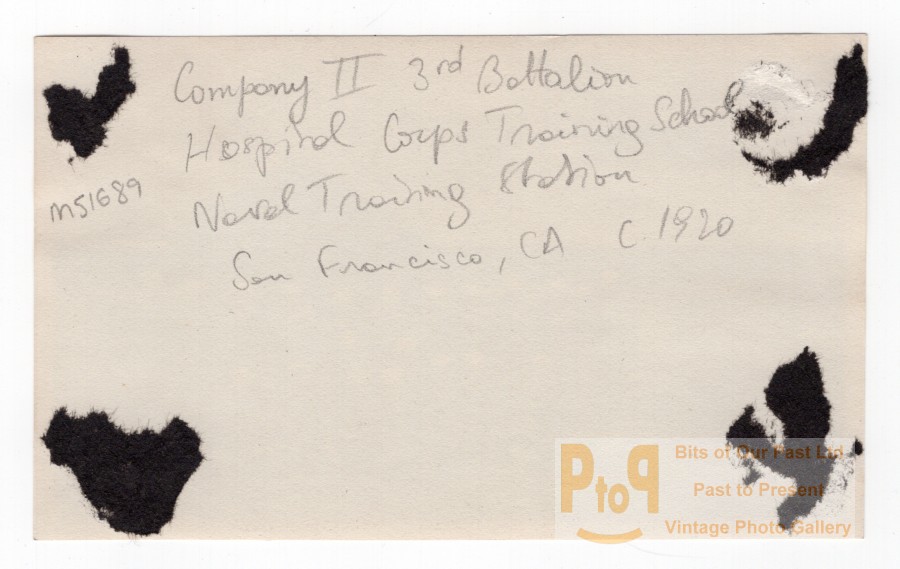 Company II 3rd Battalion
Hospital Corps Training School
M51689
Naval Training Station
San Francisco, CA C. 1920
PtoP
Bits of Our Past Ltd
Past to Present
Vintage Photo Gallery